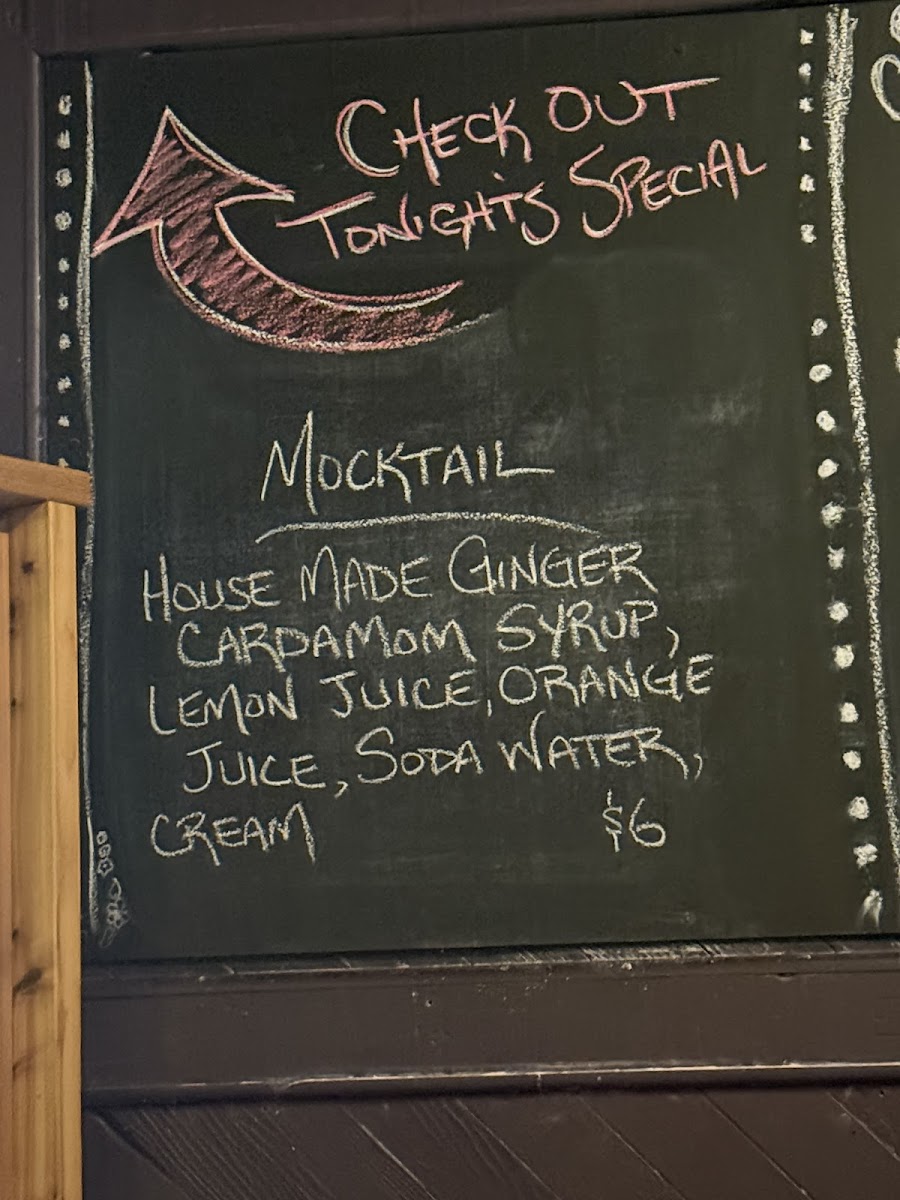 CHECK OUT
TONIGHT'S SPECIAL
MOCKTAIL
HOUSE MADE GINGER
CARDAMOM SYRUP,
LEMON JUICE, ORANGE
JUICE, SODA WATER,
CREAM $6